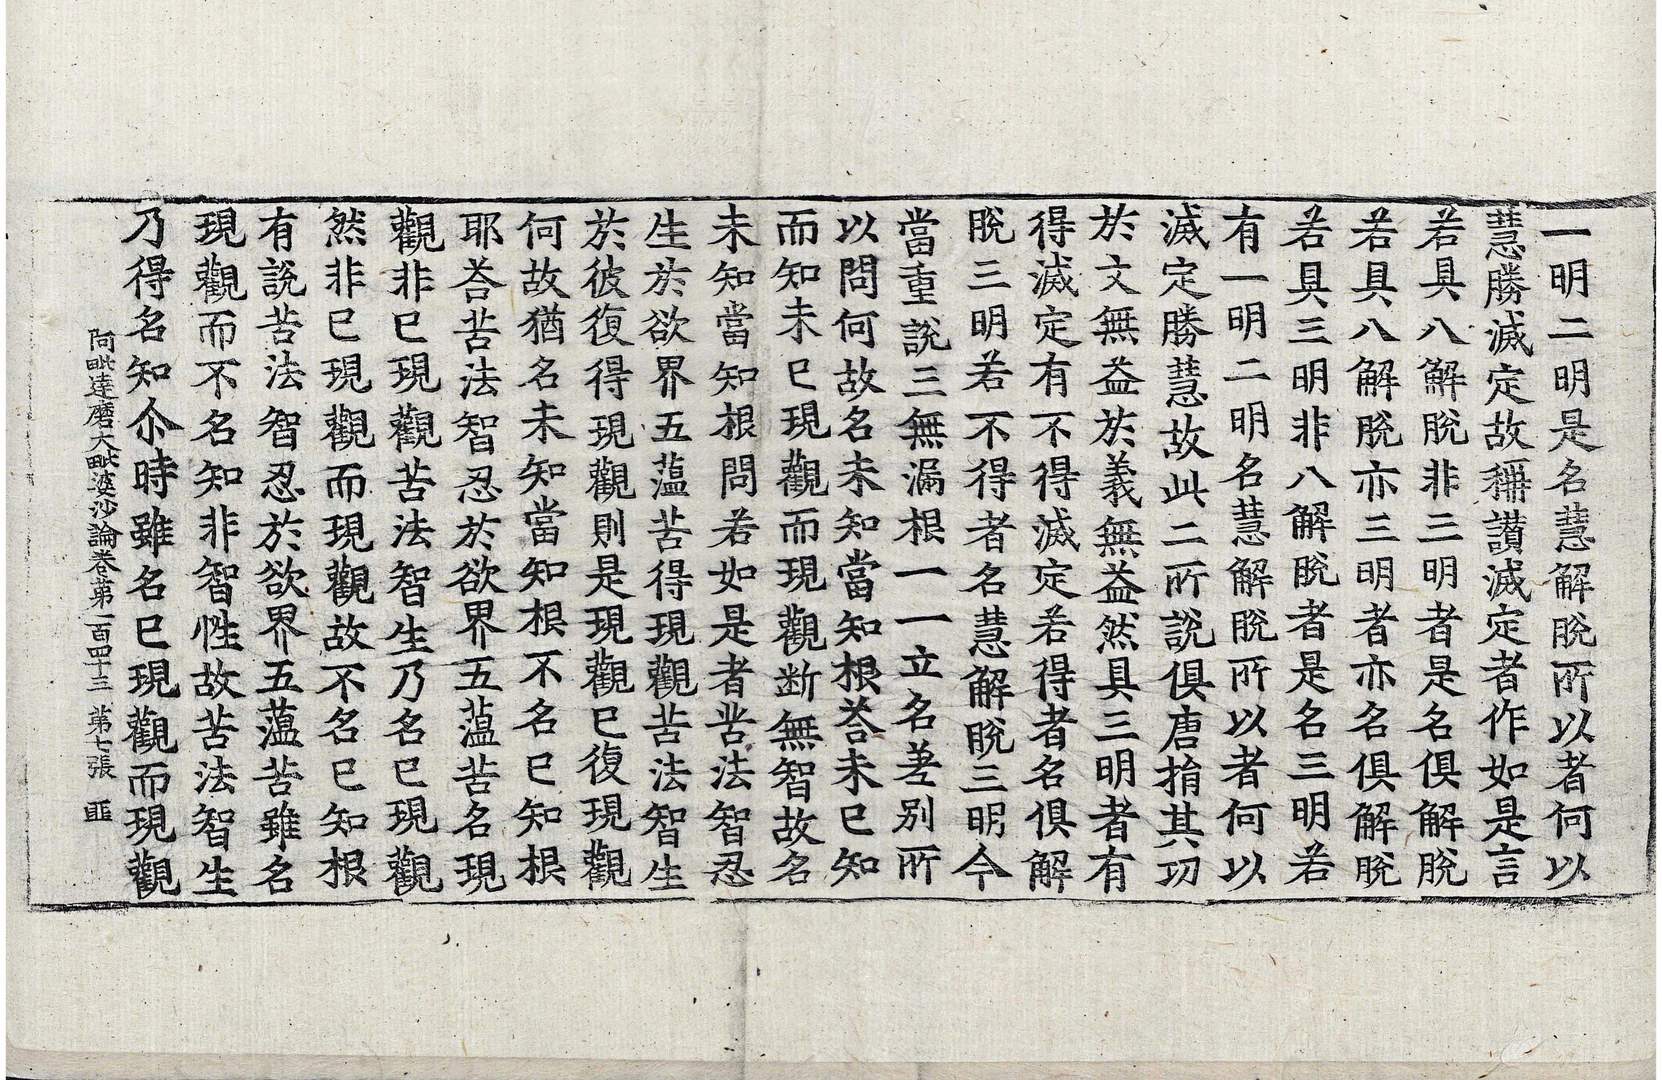 一明二明是名慧解脫所以者何以
慧勝滅定故稱讃滅定者作如是言
若具八解脫非三明者是名俱解脫
若具八解脫亦三明者亦名俱解脫
若具三明非八解脫者是名三明若
有一明二明名慧解脫所以者何以
滅定勝慧故此二所說俱唐捐其功
於文無益於義無益然具三明者有
得滅定有不得滅定若得者名俱解
脫三明若不得者名慧解脫三明今
當重說三無漏根一一立名差別所
以問何故名未知當知根荅未已知
而知未已現觀而現觀断無智故名
未知當知根問若如是者苦法智忍
生於欲界五蕰苦得現觀苦法智生
於彼復得現觀則是現觀已復現觀
何故猶名未知當知根不名已知根
耶荅苦法智忍於欲界五蕰苦名現
觀非已現觀苦法智生乃名已現觀
然非已現觀而現觀故不名已知根
有說苦法智忍於欲界五蕰苦雖名
現觀而不名知非智性故苦法智生
乃得名知尒時雖名已現觀而現觀
阿毗達磨大毗婆沙論卷第一百四十三 第七張 匪